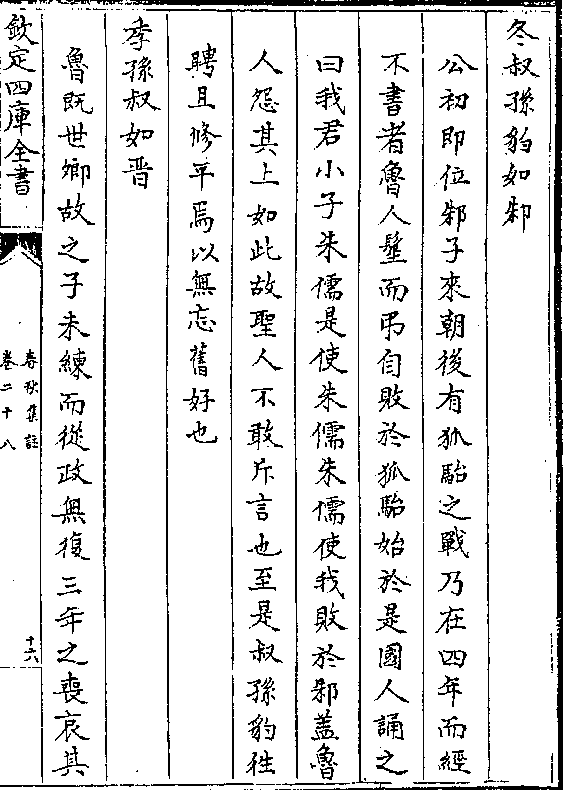 冬叔孫豹如邾
公初即位邾子來朝後有狐駘之戰乃在四年而經
不書者魯人髽而弔自敗於狐駘始於是國人誦之
曰我君小子朱儒是使朱儒朱儒使我敗於邾蓋魯
人怨其上如此故聖人不敢斥言也至是叔孫豹徃
聘且修平焉以無忘舊好也
季孫叔如晉
魯既世卿故之子未練而從政無復三年之喪哀其
欽定四庫全書
春秋集註
卷二十八
十六